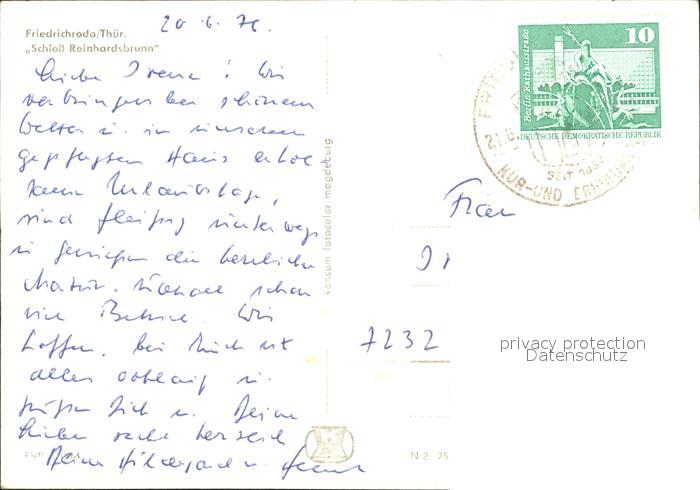 Friedrichroda/Thür.
„Schloß Reinhardsbrunn"
20.6.76.
Liebe Irene! Wir
verbringen bei schönem
Wetter u. in unserem
gepflegten Haus erhol
same Urlaubstage,
sind fleißig unterwegs
u. genießen die herrliche
Natur.
viel Betrieb. Wir
hoffen, bei Euch ist
alles u.
grüßen Dich u. Deine
Lieben recht herzlich
Deine Hildegard u.
konsum fotocolor magdeburg
N 2 75
10
Berlin·Rathausstraße
DEUTSCHE DEMOKRATISCHE REPUBLIK
FRIED
21.6.
SEIT 1837
KUR-UND
Frau
7232
privacy protection
Datenschutz